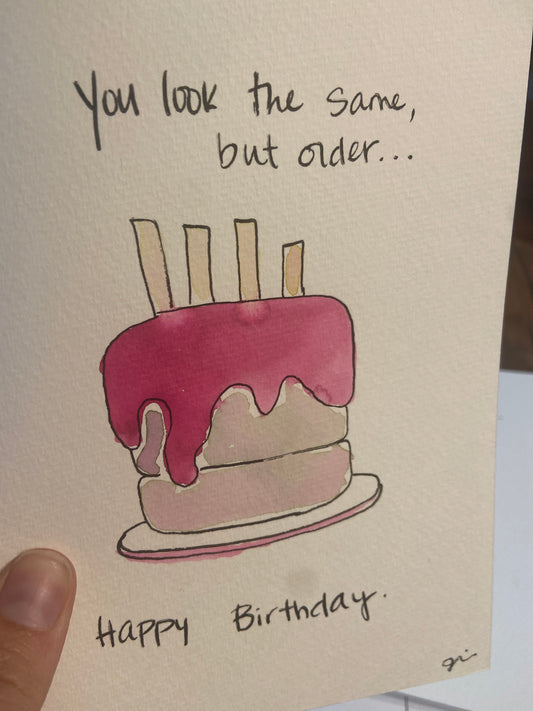 You look the same,
but older...
Happy Birthday.